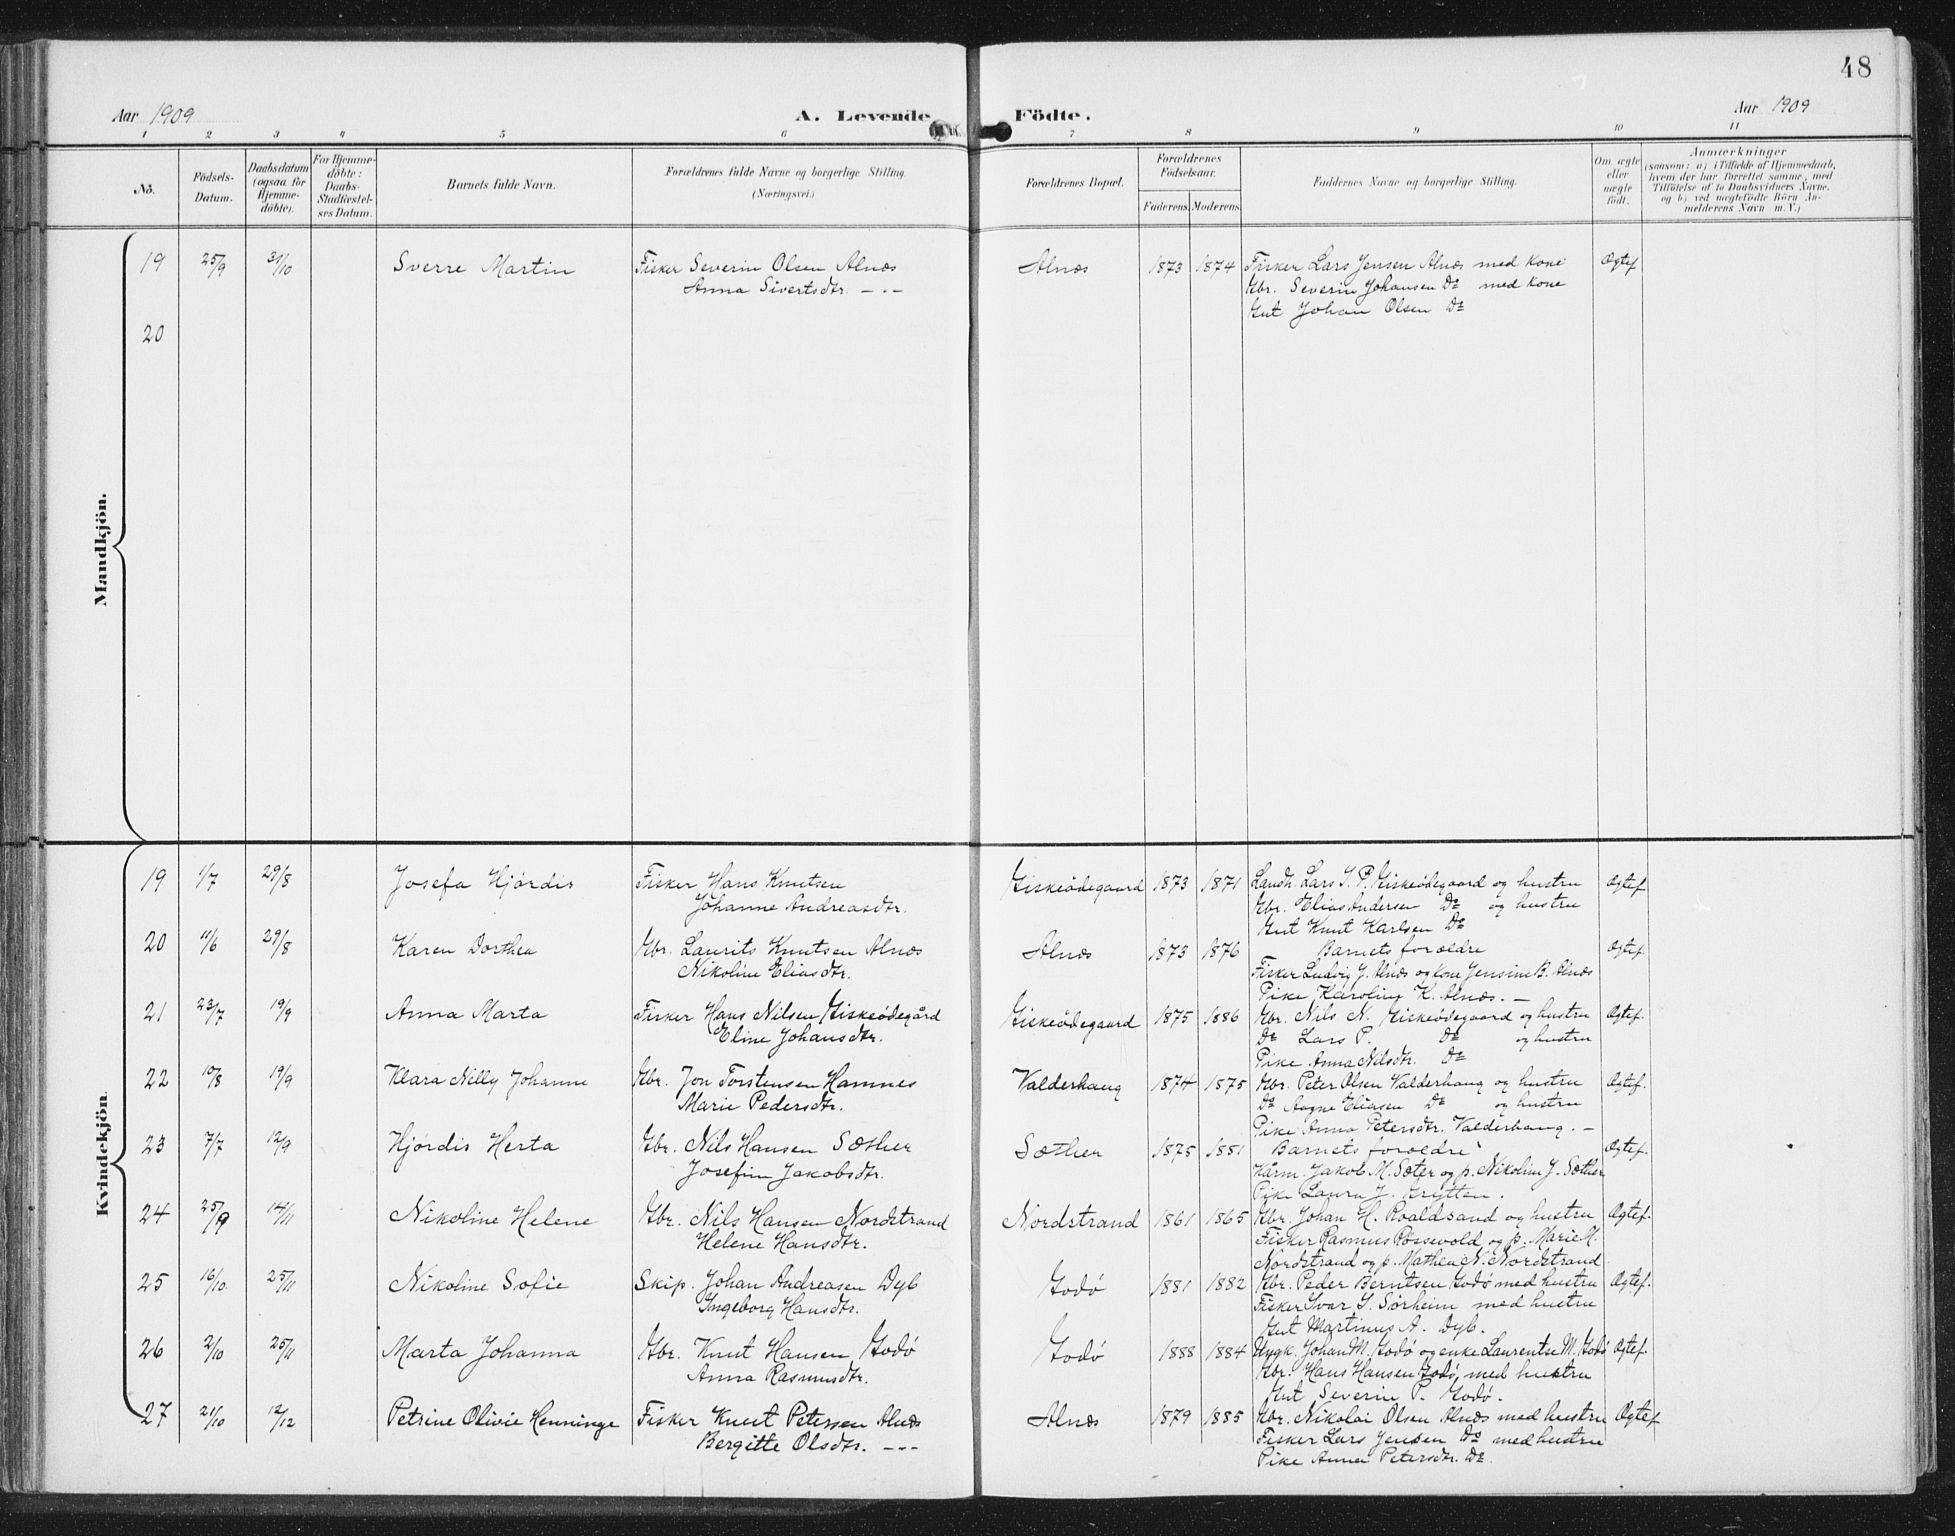 48
Aar 1909
A. Levende Födte.
Aar 1909
1 2 3 4 5 6 7 8 9 10 11
No.
Födsels-Datum.
Daabsdatum (ogsaa for Hjemme-döbte).
For Hjemme-döbte: Daabs-Stadfestel-ses Datum.
Barnets fulde Navn.
Forældrenes fulde Navne og borgerlige Stilling
(Næringsvei.)
Forældrenes Bopæl.
Forældrenes Födselsaar.
Faderens. Moderens.
Faddernes Navne og borgerlige Stilling.
Om ægte eller uægte födt.
Anmærkninger
(saasom: a) i Tilfælde af Hjemmedaab,
hvem der har forrettet samme, med
Tilföielse af to Daabsvidners Navne,
og b) ved uægtefödte Börn An-
melderens Navn m.V.)
Mandkjön.
19 25/9 31/10 Sverre Martin Fisker Severin Olsen Alnæs Alnæs 1873 1874 Fisker Lars Jensen Alnæs med kone Ægtef
Anna Sivertsdtr. -"- Gbr. Severin Johansen Do med kone
Gut Johan Olsen Do
20
Kvindekjön.
19 1/7 29/8 Josefa Hjørdis Fisker Hans Knutsen Giskeødegaard 1873 1871 Landh. Lars S. P. Giskeødegaard og hustru Ægtef.
Johanne Andreasdtr. Gbr. Elias Andersen Do og hustru
Gut Knut Karlsen Do
20 11/6 29/8 Karen Dorthea Gbr. Laurits Knutsen Alnæs Alnæs 1873 1876 Barnets forældre Ægtef.
Nikoline Eliasdtr. Fisker Ludvig J. Alnæs og kone Jensine B. Alnæs
Pike Karoline K. Alnæs. -
21 23/7 19/9 Anna Marta Fisker Hans Nilsen Giskeødegård Giskeødegaard 1875 1886 Gbr. Nils N. Giskeødegaard og hustru Ægtef.
Eline Johansdtr. Do Lars P. Do og hustru
Pike Anna Nilsdtr. Do
22 10/8 19/9 Klara Nelly Johanne Gbr. Jon Torstensen Hamnes Valderhaug 1874 1875 Gbr. Peter Olsen Valderhaug og hustru Ægtef.
Marie Pedersdtr. Do Aagne Eliasen Do og hustru
Pike Anna Petersdtr. Valderhaug. -
23 7/7 12/9 Hjørdis Herta Gbr. Nils Hansen Sæther Sæther 1875 1881 Barnets forældre Ægtef.
Josefine Jakobsdtr. Kårm. Jakob M. Sæter og p. Nikoline J. Sæther
Pike Laura J. Grytten.
24 25/9 14/11 Nikoline Helene Gbr. Nils Hansen Nordstrand Nordstrand 1861 1865 Gbr. Johan H. Roaldsand og hustru Ægtef.
Helene Hansdtr. Fisker Rasmus Røssevold og p. Marie M.
Nordstrand og p. Mathea N. Nordstrand
25 16/10 25/11 Nikoline Sofie Skip. Johan Andreasen Dyb Godø 1881 1882 Gbr. Peder Berntsen Godø med hustru Ægtef.
Ingeborg Hansdtr. Fisker Ivar S. Sørheim med hustru
Gut Martinus A. Dyb.
26 2/10 25/11 Marta Johanna Gbr. Knut Hansen Godø Godø 1888 1884 Ungk. Johan M. Godø og enke Laurentse M. Godø Ægtef.
Anna Rasmusdtr. Gbr. Hans Hansen Godø, med hustru
Gut Severin P. Godø.
27 21/10 12/12 Petrine Olivie Henninge Fisker Knut Petersen Alnæs Alnæs 1879 1885 Gbr. Nikolai Olsen Alnæs med hustru Ægtef
Bergitte Olsdtr. -"- Fisker Lars Jensen Do med hustru
Pike Anna Petersdtr. Do